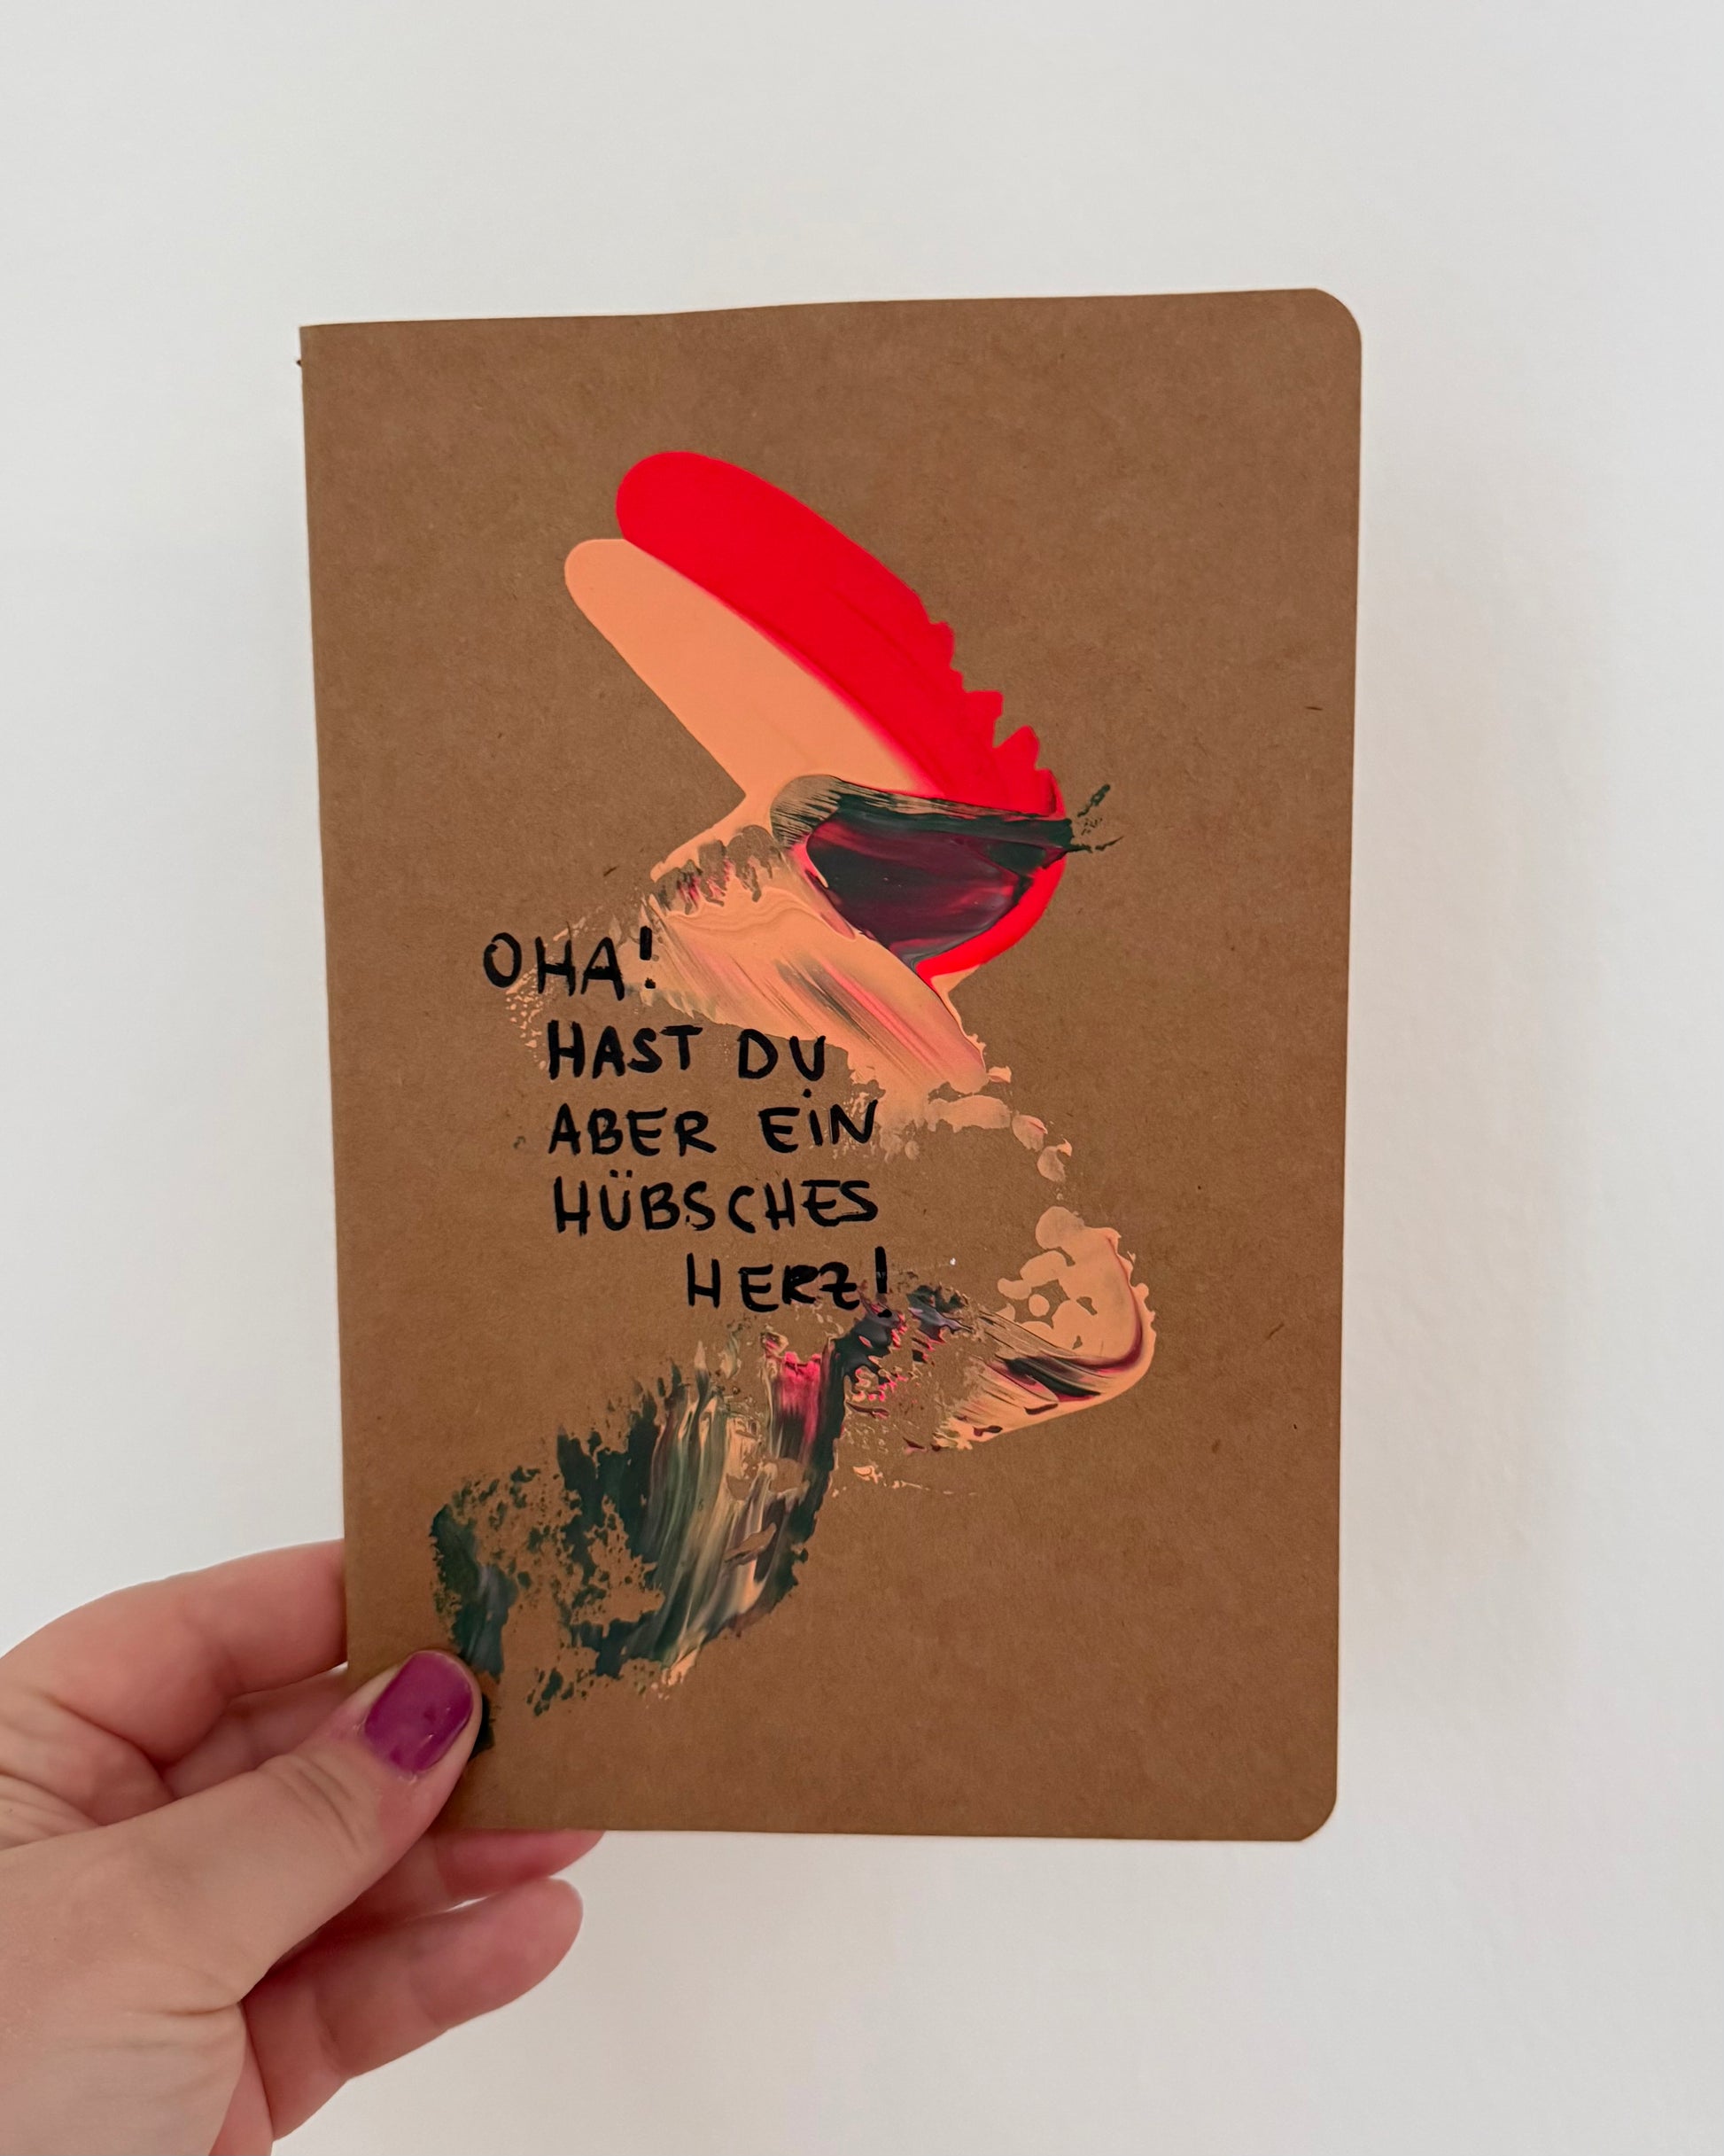 OHA!
HAST DU
ABER EiN
HÜBSCHES
HERZ!